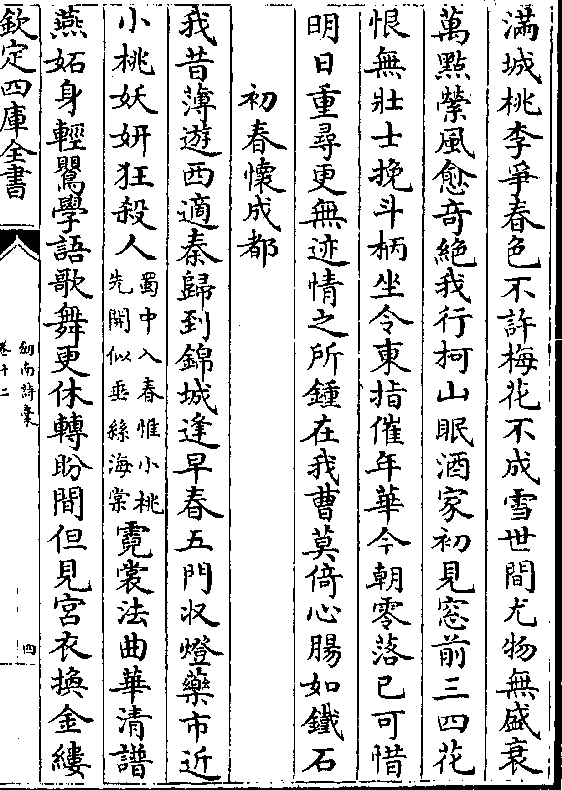 滿城桃李爭春色不許梅花不成雪世間尤物無盛衰
萬點縈風愈竒絶我行柯山眠酒家初見窓前三四花
恨無壯士挽斗柄坐令東指催年華今朝零落已可惜
明日重尋更無迹情之所鍾在我曹莫倚心腸如鐵石
初春懷成都
我昔薄遊西適秦歸到錦城逢早春五門收燈藥市近
小桃妖妍狂殺人蜀中入春惟小桃先開似垂絲海棠霓裳法曲華清譜
燕妬身輕鸎學語歌舞更休轉盼間但見宮衣換金縷
欽定四庫全書
劍南詩槀
卷十二
四